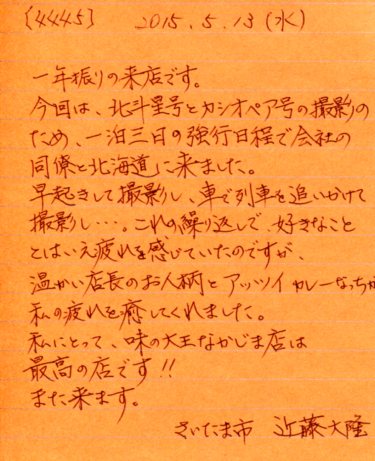 [4445] 2015.5.13(水)
一年振りの来店です。
今回は、北斗星号とカシオペア号の撮影の
ため、一泊三日の強行日程で会社の
同僚と北海道に来ました。
早起きして撮影し、車で列車を追いかけて
撮影し…。これの繰り返しで、好きなこと
とはいえ疲れを感じていたのですが、
温かい店長のお人柄とアッツイカレーなっちが
私の疲れを癒してくれました。
私にとって、味の大王なかじま店は
最高の店です!!
また来ます。
さいたま市 近藤大隆